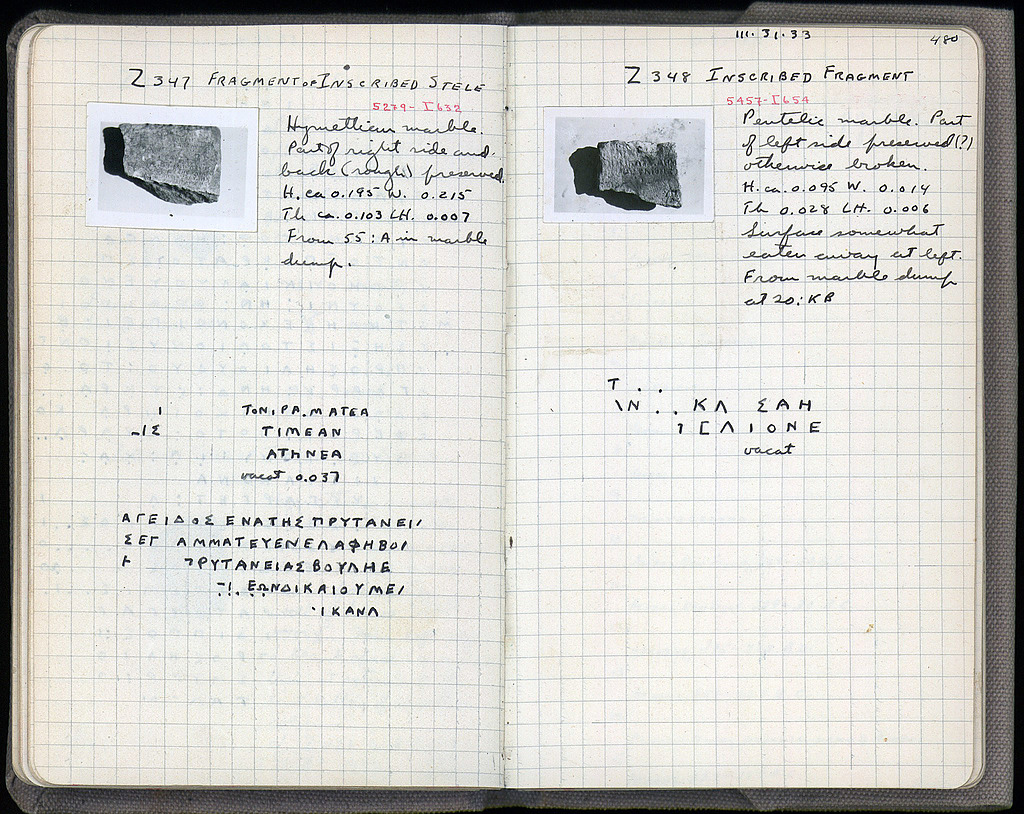 Z 347 FRAGMENT OF INSCRIBED STELE
5279 - I 632
Hymettian marble.
Part of right side and
back (rough) preserved.
H. ca 0.195 W. 0.215
Th ca. 0.103 LH. 0.007
From 55 : A in marble
dump.
Ι ΤΟΝ.ΡΑ.ΜΑΤΕΑ
ΙΣ ΤΙΜΕΑΝ
ΑΤΗΝΕΑ
vacat 0.037
ΑΓΕΙΔΟΣ ΕΝΑΤΗΣ ΠΡΥΤΑΝΕΙ
ΣΕΓ ΑΜΜΑΤΕΥΕΝΕΛΑΦΗΒΟΙ
ΡΥΤΑΝΕΙΑΣΒΟΥΛΗΣ
ΕΩΝΔΙΚΑΙΟΥΜΕ
ΙΚΑΝΛ
III. 31. 33
480
Z 348 INSCRIBED FRAGMENT
5457 - I 654
Pentelic marble. Part
of left side preserved (?)
otherwise broken.
H. ca. 0.095 W. 0.014
Th 0.028 LH. 0.006
Surface somewhat
eaten away at left.
From marble dump
at 20 : KB
Τ . .
\Ν . . ΚΛ ΣΑΗ
Ι Γ Λ Ι Ο Ν Ε
vacat